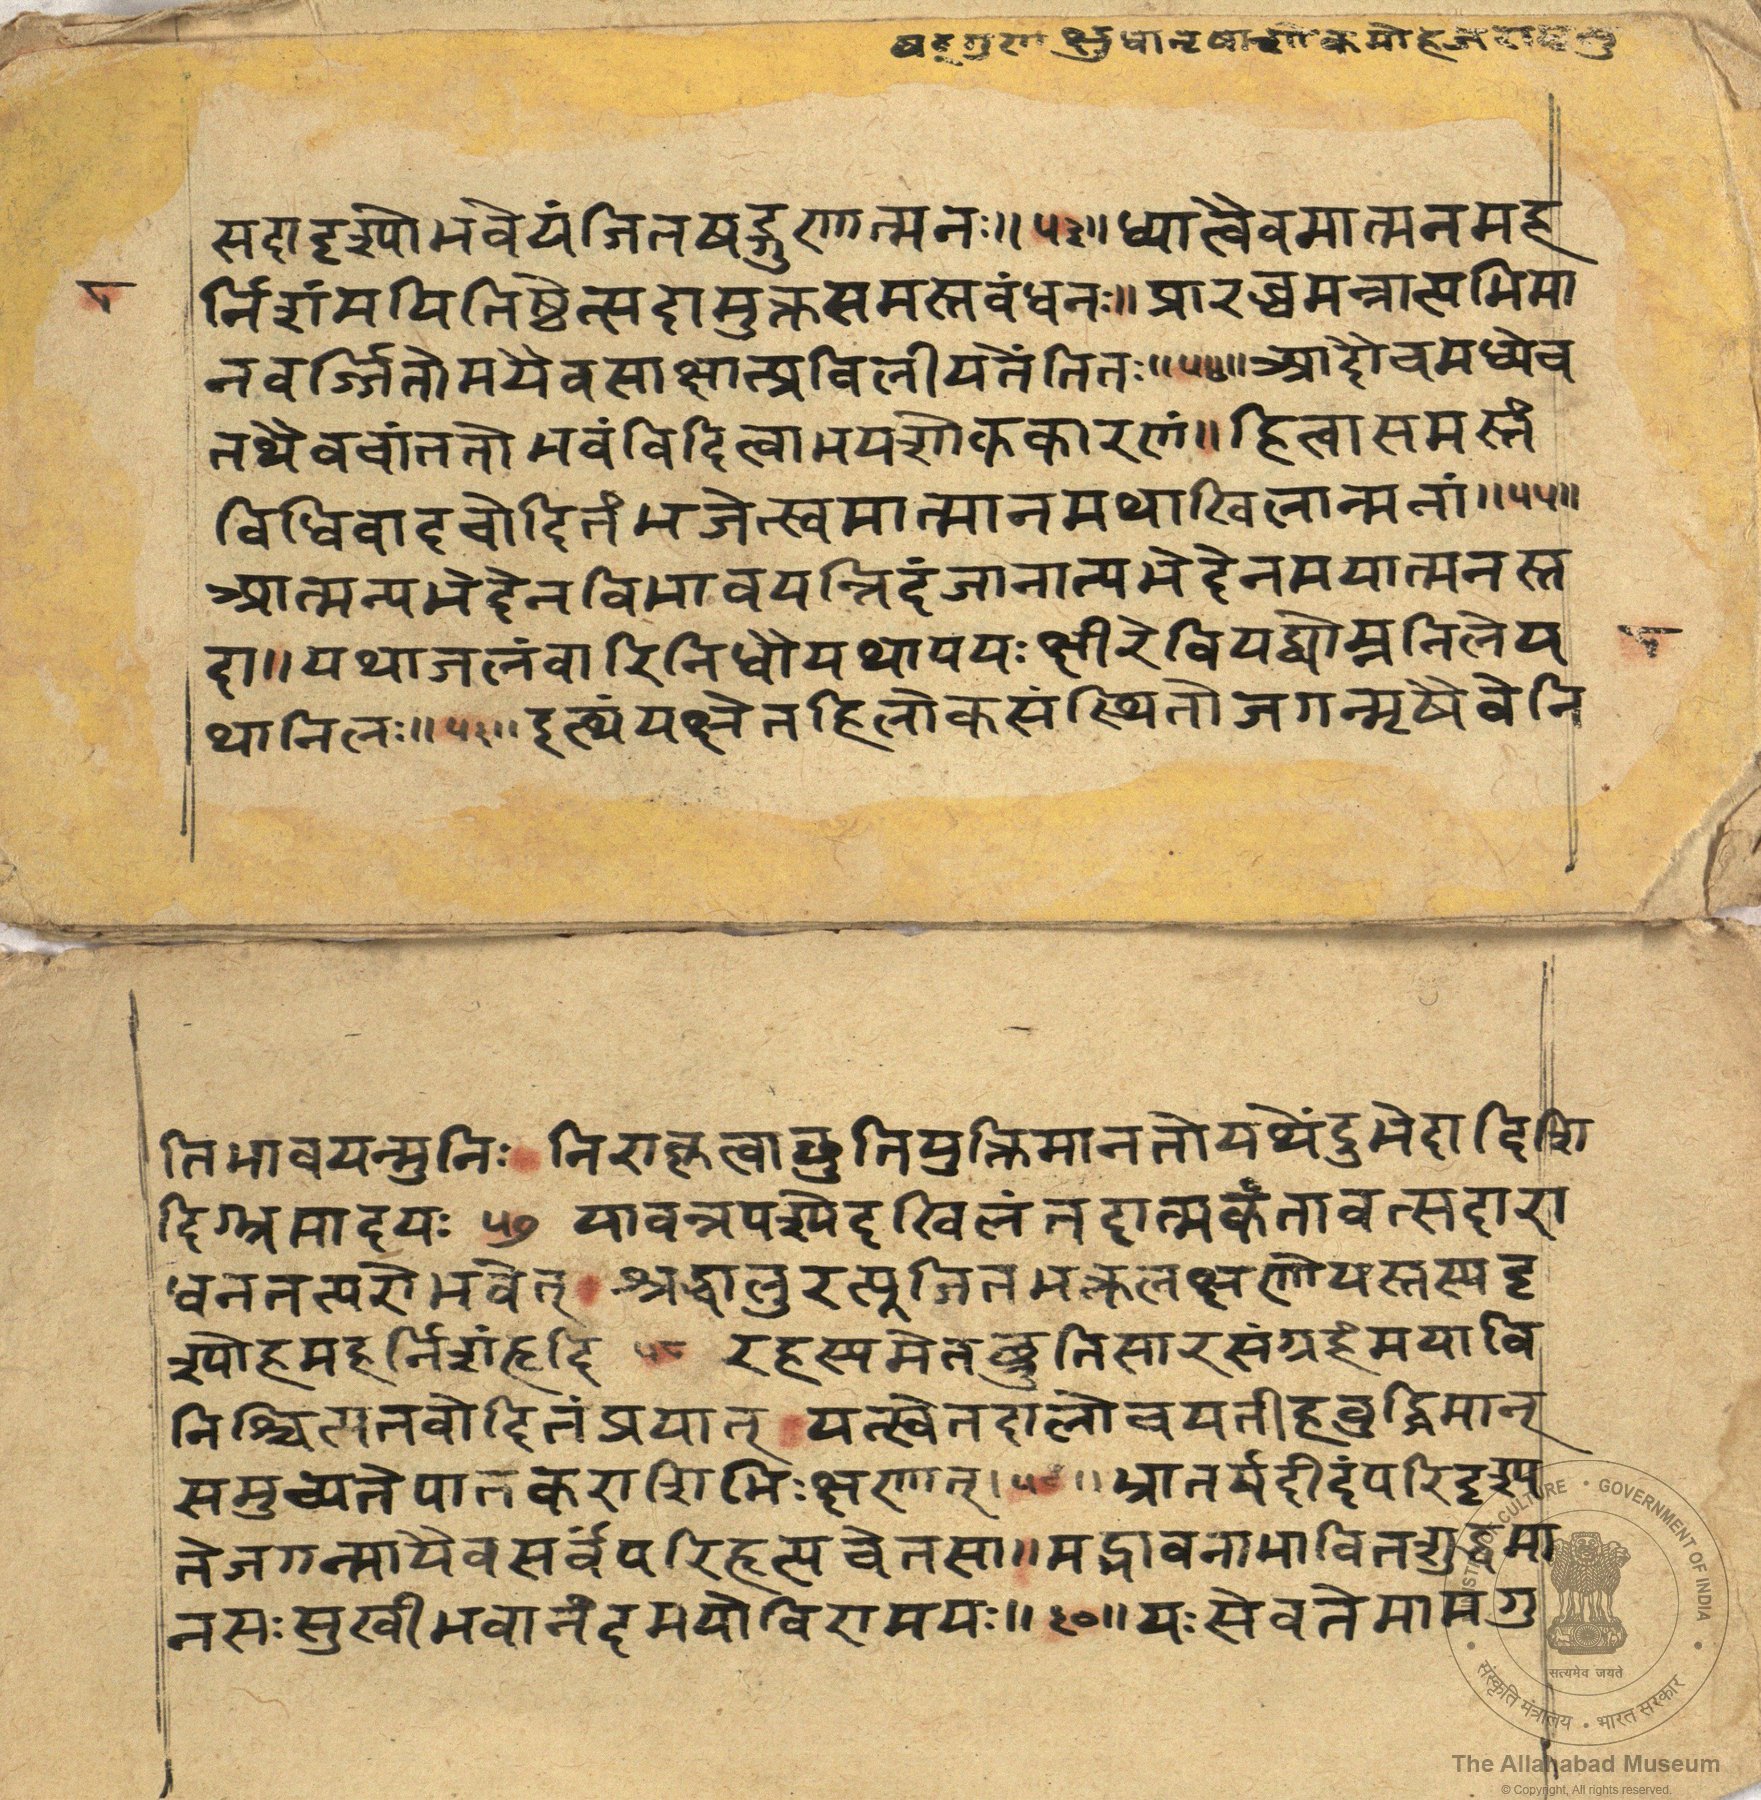 षट्गुण क्षुधा तृषा शोक मोह जरा मृत्यु
सदादृश्योभवेयंजितषड्गुणात्मनः॥५३॥ध्यात्वैवमात्मनमह
र्निशंमयितिष्ठेत्सदामुक्तसमस्तवंधनः॥प्रारब्धमन्नात्यभिमा
नवर्ज्जितोमयैवसाक्षात्प्रविलीयतेंतितः॥५४॥आदौचमध्येच
तथैवचांततोभवंविदित्वाभयशोककारणं॥हित्वासमस्तं
विधिवादचोदितंभजेत्स्वमात्मानमथाखिलात्मनां॥५५॥
आत्मन्यभेदेनविभावयन्निदंजानात्यभेदेनमयात्मनस्त
दा॥यथाजलंवारिनिधौयथापयःक्षीरेवियद्व्योम्नतिलेय
थानिलः॥५६॥इत्थंयक्ष्नेतहिलोकसंस्थितोजगन्मृषैवेति
तिभावयन्मुनिः निराकृतत्वाछ्रुतियुक्तिमानतोयथेंदुभेदादिशि
दिग्भ्रमादयः ५७ यावन्नपश्येदखिलंतदात्मकंतावत्सदारा
धनतत्परोभवेत् श्रद्धालुरत्यूजितभक्तलक्ष्णणोयस्तस्यदृ
श्योहमहर्निशंहृदि ५८ रहस्यमेतछ्रुतिसारसंग्रहंमयावि
निश्चित्यतवोदितंप्रयात् यत्स्वेतदालोचयतीहवुद्धिमान्
समुच्यतेपातकराशिभिःक्षणात्।५९॥भ्रातर्यदीदंपरिदृश्य
तेजगन्मायैवसर्वंपरिहृत्यचेतसा॥मद्भावनाभावितशुद्धमा
नसःसुखीभवानंदमयोविरामयः॥६०॥यःसेवतेमामगु
सत्यमेव जयते
The Allahabad Museum
© Copyright, All rights reserved.